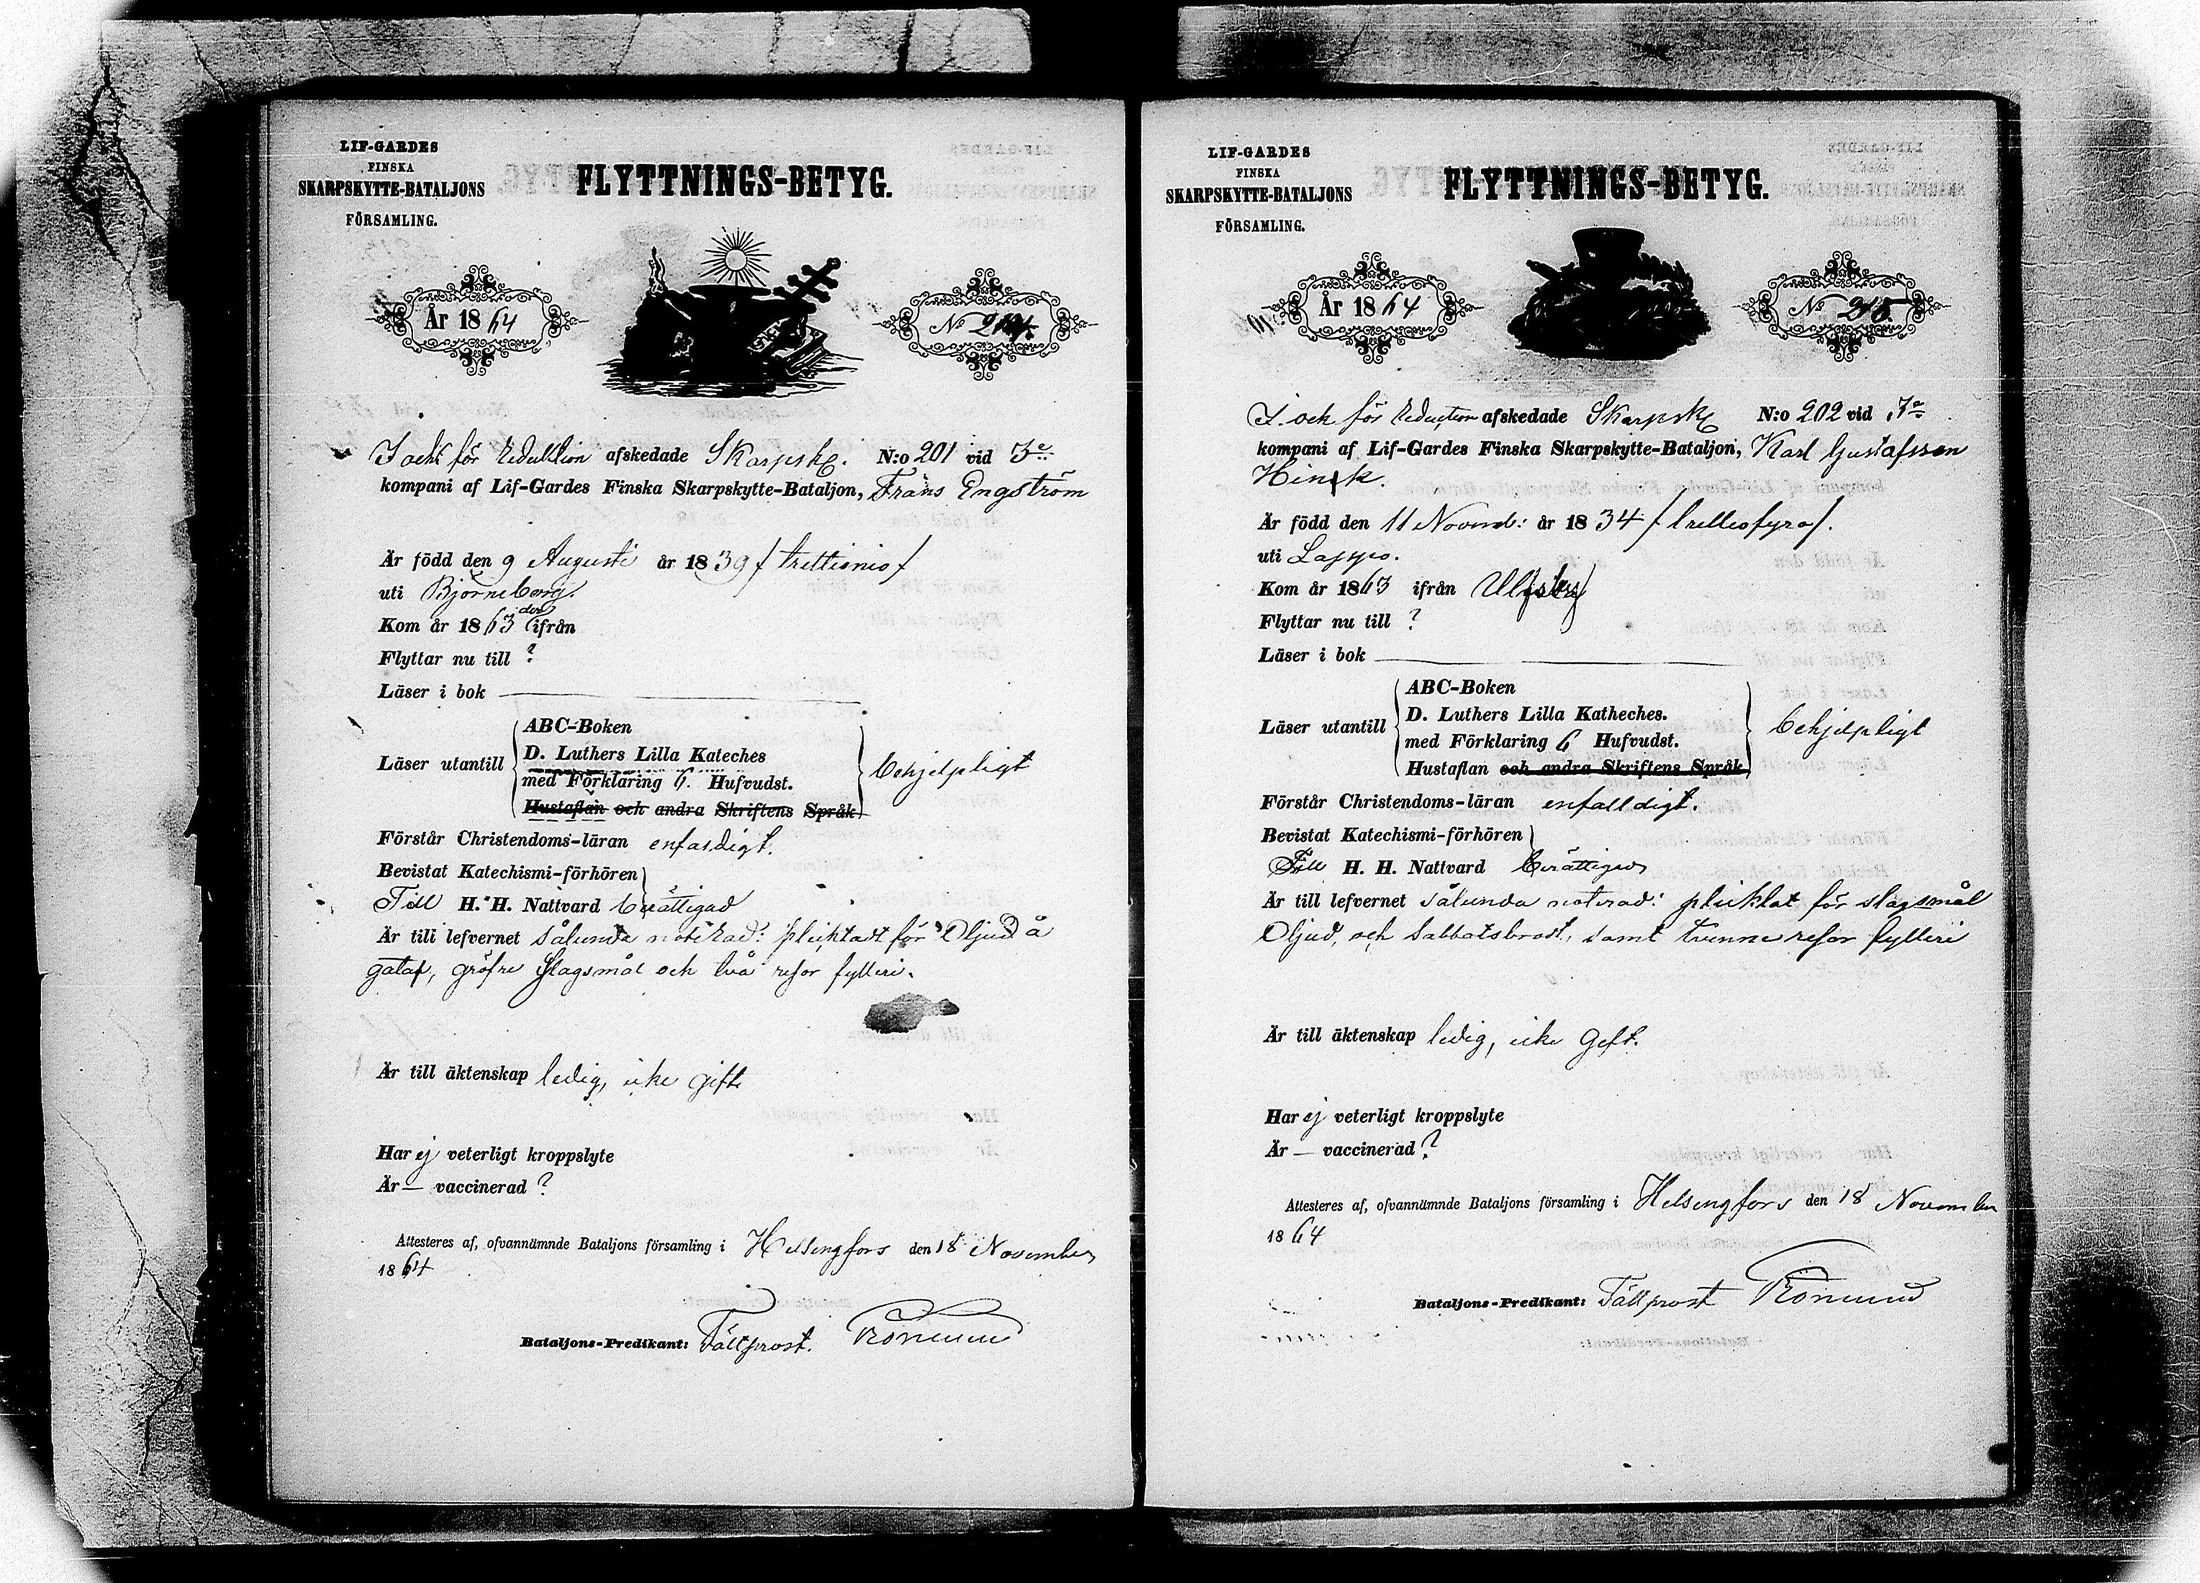 LIF-GARDES
FINSKA
SKARPSKYTTE-BATALJONS
FÖRSAMLING.
FLYTTNINGS-BETYG.
År 1864
No 214.
I och för Reduktion afskedade Skarpsk. N:o 201 vid 3e
kompani af Lif-Gardes Finska Skarpskytte-Bataljon, Frans Engström
Är född den 9 Augusti år 1839 / trettionio /
uti Björneborg.
Kom år 1863 der ifrån
Flyttar nu till ?
Läser i bok
Läser utantill
ABC-Boken
D. Luthers Lilla Kateches
med Förklaring 6. Hufvudst.
Hustaflan och andra Skriftens Språk
behjelpligt
Förstår Christendoms-läran enfaldigt.
Bevistat Katechismi-förhören
Till H. H. Nattvard berättigad
Är till lefvernet sålunda noterad: pliktadt för Oljud å
gatan, gröfre slagsmål och två resor fylleri.
Är till äktenskap ledig, icke gift
Har ej veterligt kroppslyte
Är — vaccinerad ?
Attesteres af, ofvannämnde Bataljons församling i Helsingfors den 18 November
1864
Bataljons-Predikant: Fältprost.
LIF-GARDES
FINSKA
SKARPSKYTTE-BATALJONS
FÖRSAMLING.
FLYTTNINGS-BETYG.
År 1864
No 215.
I och för Reduction afskedade Skarpsk N:o 202 vid 3e
kompani af Lif-Gardes Finska Skarpskytte-Bataljon, Karl Gustafsson
Är född den 11 Novemb: år 1834 / trettiofyra /.
uti Lappo.
Kom år 1863 ifrån Ulfsby
Flyttar nu till ?
Läser i bok
Läser utantill
ABC-Boken
D. Luthers Lilla Katheches.
med Förklaring 6 Hufvudst.
Hustaflan och andra Skriftens Språk
behjelpligt
Förstår Christendoms-läran enfalldigt.
Bevistat Katechismi-förhören
Till H. H. Nattvard berättigad
Är till lefvernet sålunda noterad: pliktat för slagsmål
Oljud, och Sabbatsbrott, samt tvenne resor fylleri
Är till äktenskap ledig, icke Gift.
Har ej veterligt kroppslyte
Är — vaccinerad ?
Attesteres af, ofvannämnde Bataljons församling i Helsingfors den 18 November
1864
Bataljons-Predikant: Fältprost